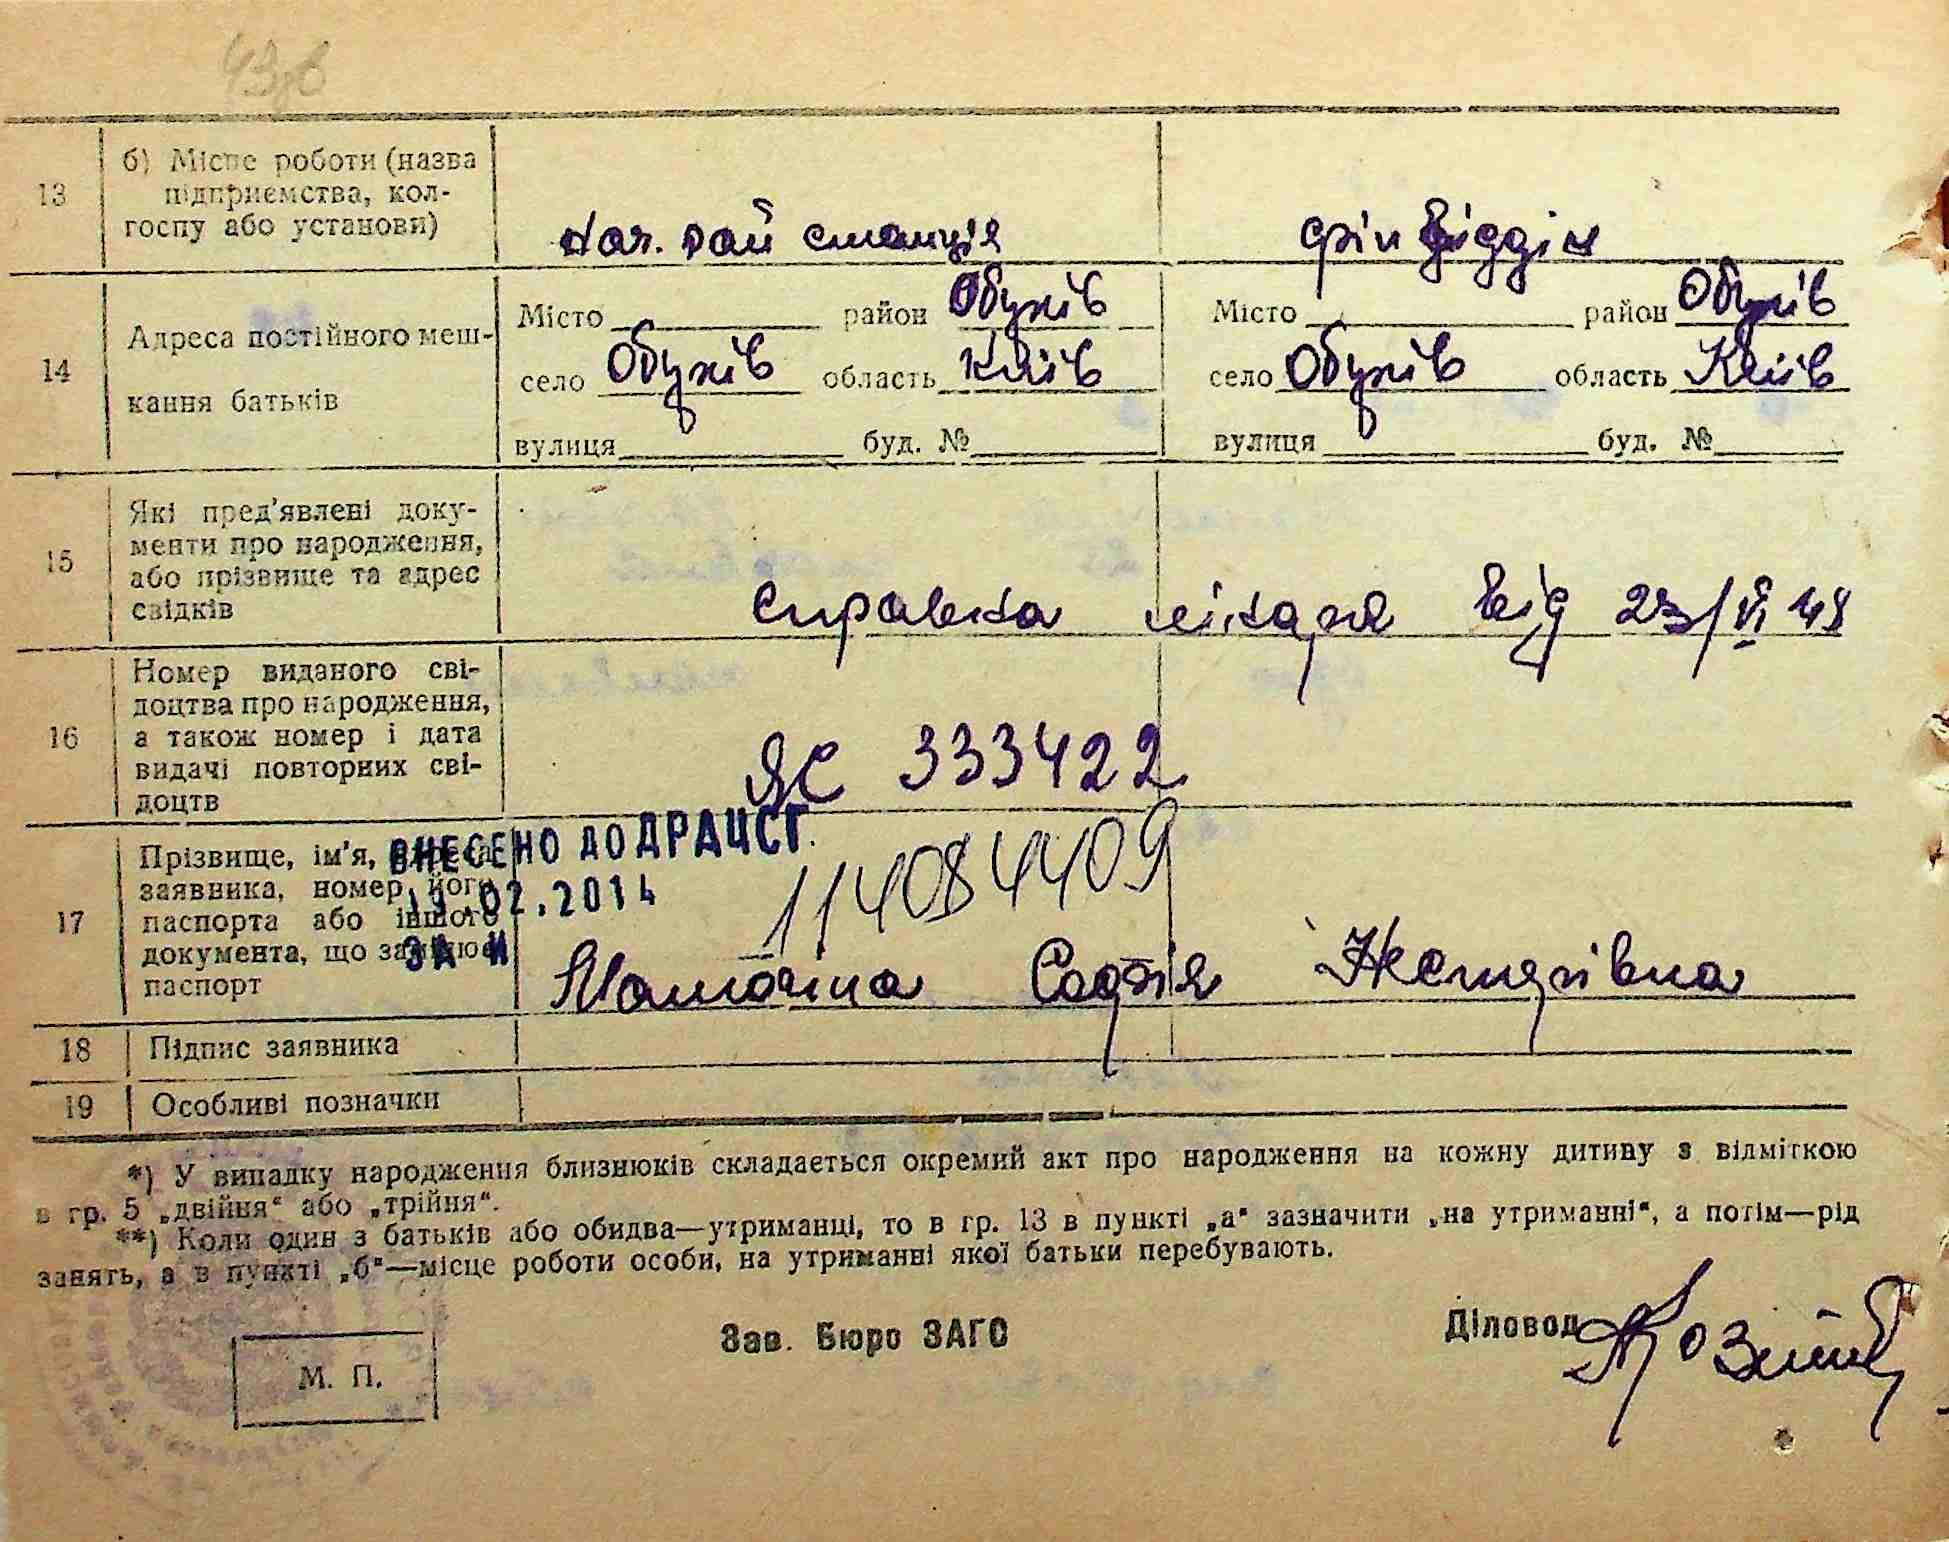 43в
13 б) Місце роботи (назва
підприємства, кол-
госпу або установи)
нач. рай станція фін відділ
14 Адреса постійного меш-
кання батьків
Місто район Обухів Місто район Обухів
село Обухів область Київ село Обухів область Київ
вулиця буд. № вулиця буд. №
15 Які пред'явлені доку-
менти про народження,
або прізвище та адрес
свідків
справка лікаря від 23/VI 48
16 Номер виданого сві-
доцтва про народження,
а також номер і дата
видачі повторних сві-
доцтв
ЯС 333422
17 Прізвище, ім'я, адреса
заявника, номер його
паспорта або іншого
документа, що замінює
паспорт
ВНЕСЕНО ДО ДРАЦСГ
.02.2014
ЗА №
114084409
Софія Нестерівна
18 Підпис заявника
19 Особливі позначки
*) У випадку народження близнюків складається окремий акт про народження на кожну дитину з відміткою
в гр. 5 „двійня“ або „трійня“.
**) Коли один з батьків або обидва—утриманці, то в гр. 13 в пункті „а“ зазначити „на утриманні“, а потім—рід
занять, а в пункті „б“—місце роботи особи, на утриманні якої батьки перебувають.
М. П.
Зав. Бюро ЗАГС
Діловод